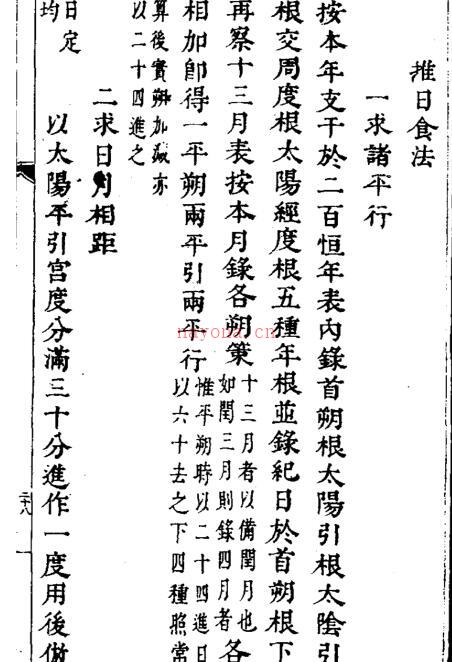 推日食法
一求諸平行
按本年支干於二百恒年表內錄首朔根太陽引根太陰引
根交周度根太陽經度根五種年根並錄紀日於首朔根下
再察十三月表按本月錄各朔策
十三月者以備閏月也
如閏三月則錄四月者
各
相加卽得一平朔兩平引兩平行
惟平朔時以二十四進日
以六十去之下四種照常
算後實朔加減亦
以二十四進之
二求日月相距
以太陽平引宮度分滿三十分進作一度用後倣
日定
均
nayona.cn